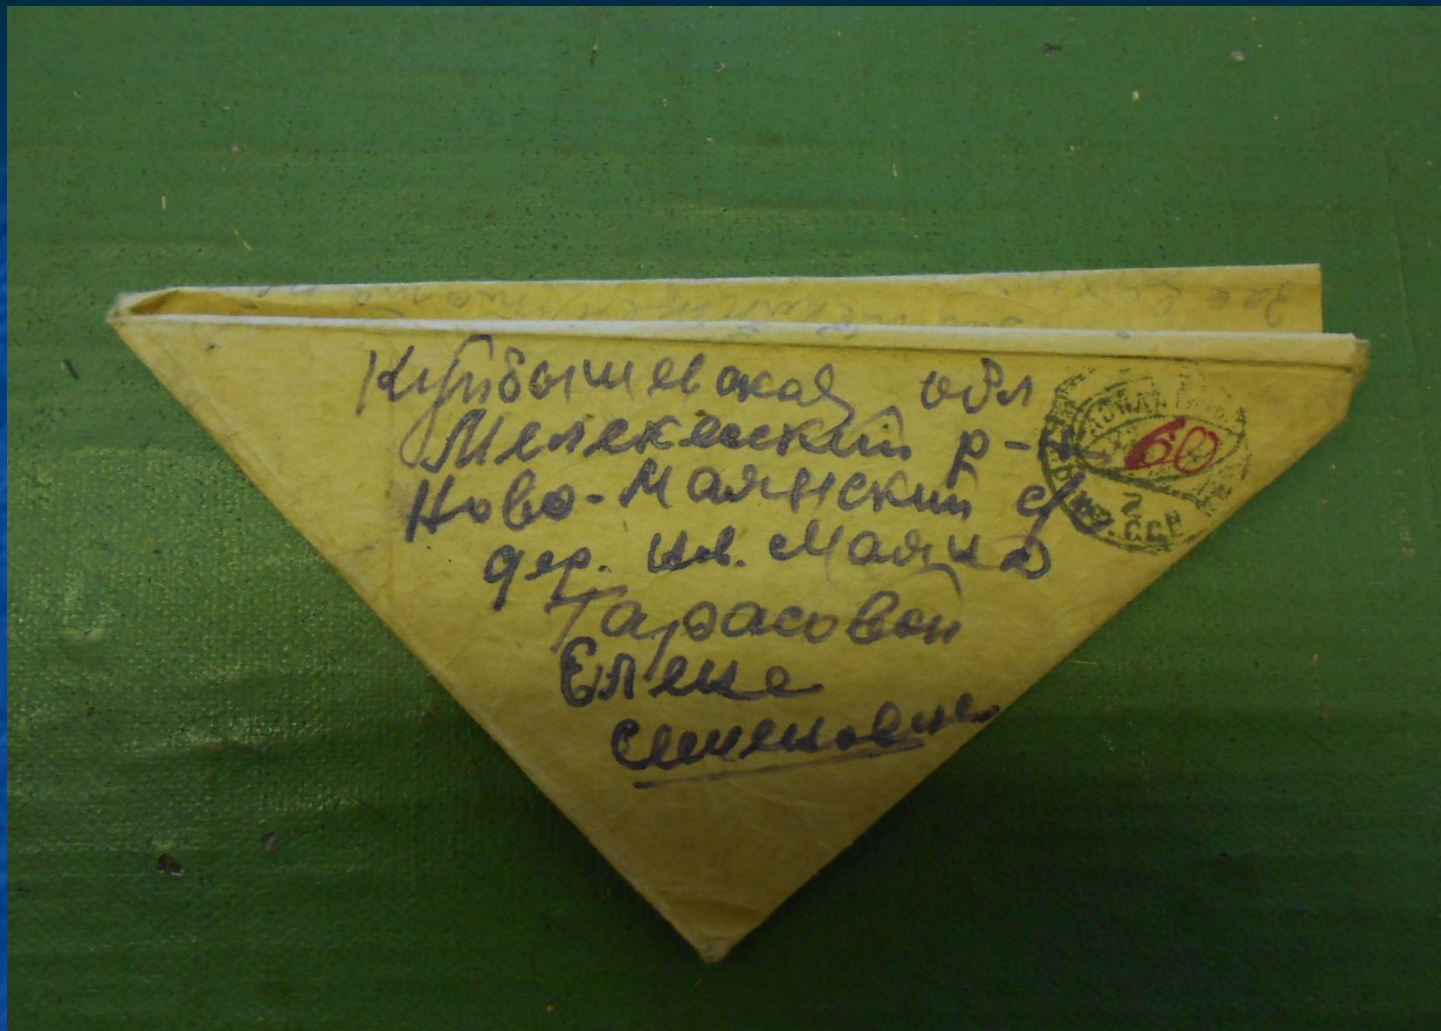 Куйбышевская обл
Мелекенский р-н
Ново-Маянский с/с
дер. Ив. Маяна
Тарасовой
Елене
Семеновне.
60
ССР